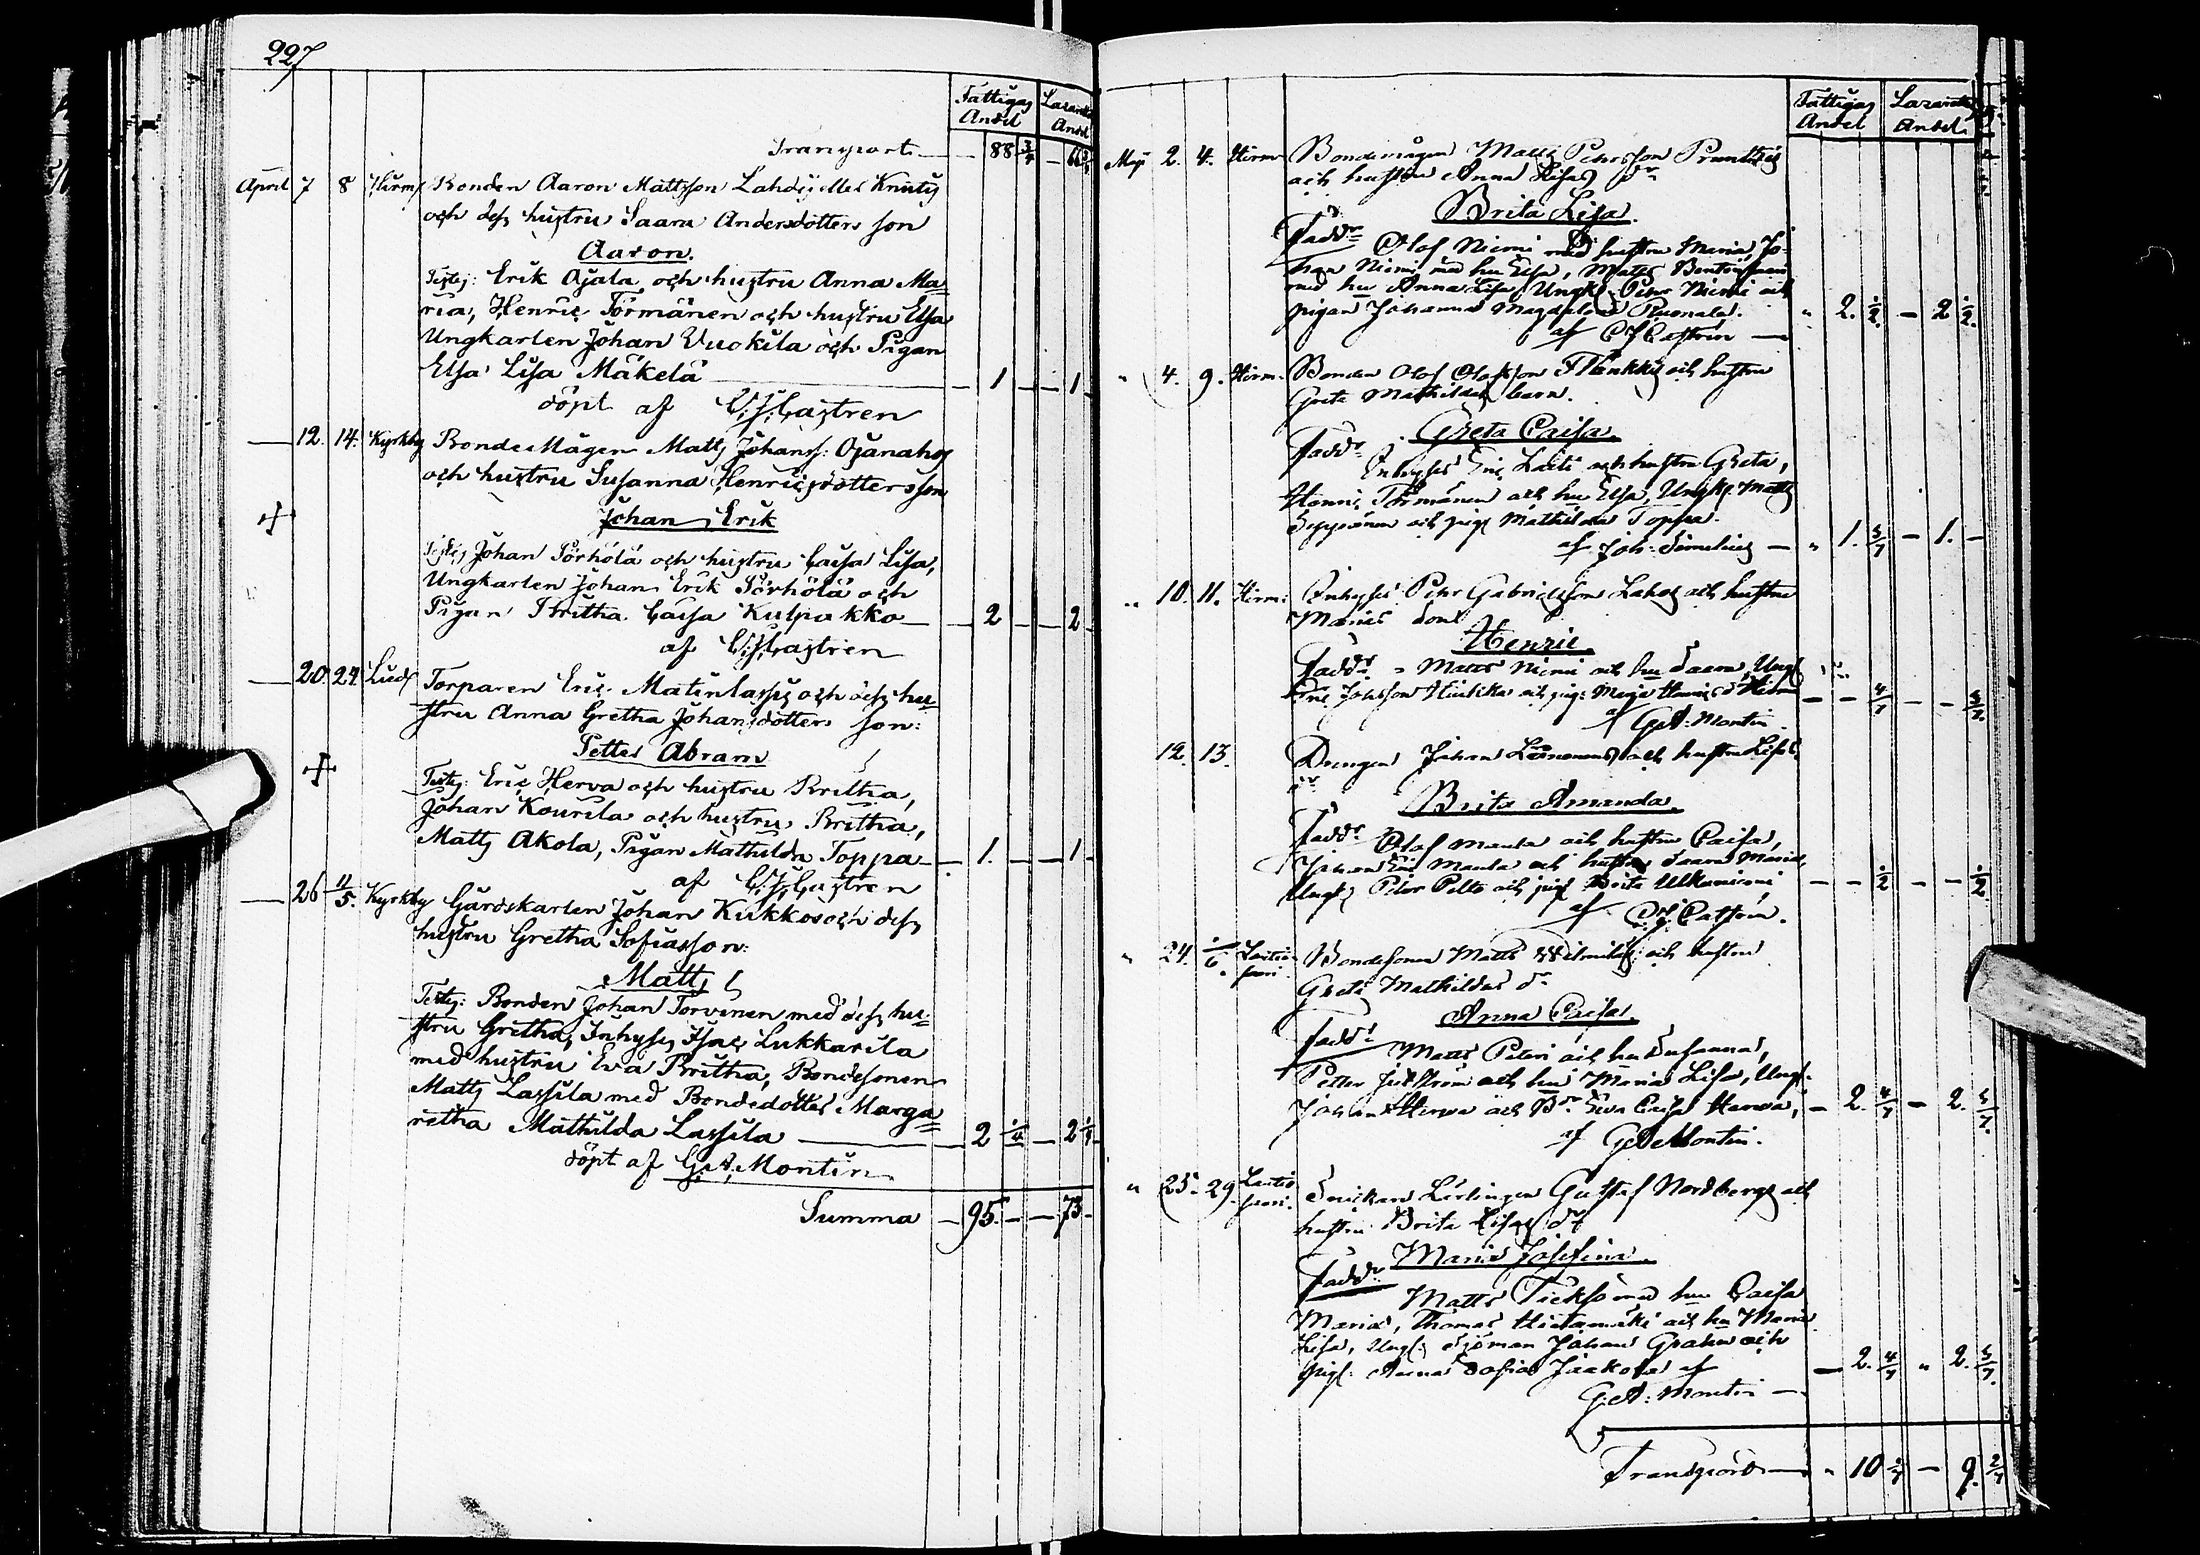 227
Fattigas Andel
Lazaretts Andel
Transport — 88 3/4 — 66 3/4
April 7 8 Hirm. Bonden Aaron Mattsson Lahdis eller Knuts
och dess hustru Saara Andersdotters son
Aaron.
Testes: Erik Ojala och hustru Anna Ma=
ria, Henric Törmänen och hustru Elsa
Ungkarlen Johan Vuokila och Pigan
Elsa Lisa Mäkelä — 1 — 1
döpt af C.J. Castren
12. 14. Kyrkby BondeMågen Matts Johanss: Ojanahos
och hustru Susanna Henricsdotters son
Johan Erik
Testes Johan Pörhölä och hustru Caisa Lisa,
Ungkarlen Johan Erik Pörhölä och
Pigan Britha Caisa Kulpakko — 2 — 2
af C.J. Castren
20. 24. Torparen Eric Matinlassis och dess hu=
stru Anna Gretha Johansdotters son:
Petter Abram
Testes: Eric Herva och hustru Britha,
Johan Kourila och hustru Britha,
Matts Akola, Pigan Mathilda Toppa — 1. — 1
af C.J. Castren
26 11/5. Kyrkby Gårdskarlen Johan Kukkos och dess
hustru Gretha Sofias son:
Matts
Testes: Bonden Johan Torvinen med dess hu=
stru Gretha, Inhyses Isac Lukkarila
med hustru Eva Britha, Bondesonen
Matts Lassila med Bondedotter Marga=
retha Mathilda Lassila — 2 1/4 — 2 1/4
döpt af G.A. Montin
Summa — 95. — 73 —
Fattigas Andel
Lazaretts Andel.
Maji 2. 4. Hirm. Bondemågen Matts Pehrsson
och hustru Anna Lisas dr
Brita Lisa.
Faddr
Olof Niemi med hustru Maria, Jo-
han Niemi med hu Elsa, Matts
med hu Anna Lisa, Ungk. Pehr Niemi och
pigan Johanna Magdalena Ruonala. " 2. 1/2 — 2 1/2
af C J Castrén —
" 4. 9. Hirm. Bonden Olof Olofsson och hustru
Greta Mathildas barn.
Greta Caisa.
Faddr
Inhyses Eric Laiti och hustru Greta,
Henric Törmänen och hu Elsa, Ungk. Matts
Seppänen och pig. Mathilda Toppa.
af Joh. Simelius — " 1. — 1. —
" 10. 11. Hirm: Inhyses Pehr Gabrielsson Lahos och hustru
Marias son
Henric.
Faddr Matts Niemi och hu Saara, Ungk
af G.A. Montin
12. 13. Drengen Johan och hustru Lisas
dr
Brita Amanda.
Faddr
Olof Manta och hustru Caisa,
Johan Eric Manta och hustru Saara Maria,
Ungk. Petter Pelto och pig. Brita Ulkuniemi — — 1/2 — — 1/2
af C.J. Castrén.
" 24. 1/6. Bondesonen Matts och hustru
Greta Mathildas dr
Anna Caisa.
Faddr
Matts Peteri och hu Susanna,
Petter och hu Maria Lisa, Ungk.
Johan Herva och Bdr. Eva Caisa Herva, — 2. — 2.
af G.A. Montin.
" 25. 29. Snickare Lärlingen Gustaf Nordbergs och
hustru Brita Lisas dr
Maria Josefina.
Faddr
Matts med hu Caisa
Maria, Thomas Hietamäki och hu Maria
Lisa, Ungk: Sjöman Johan Grahn och
pig: Anna Sofia Jaakola af — 2. " 2.
G.A: Montin —
Transport — " 10 — 9.